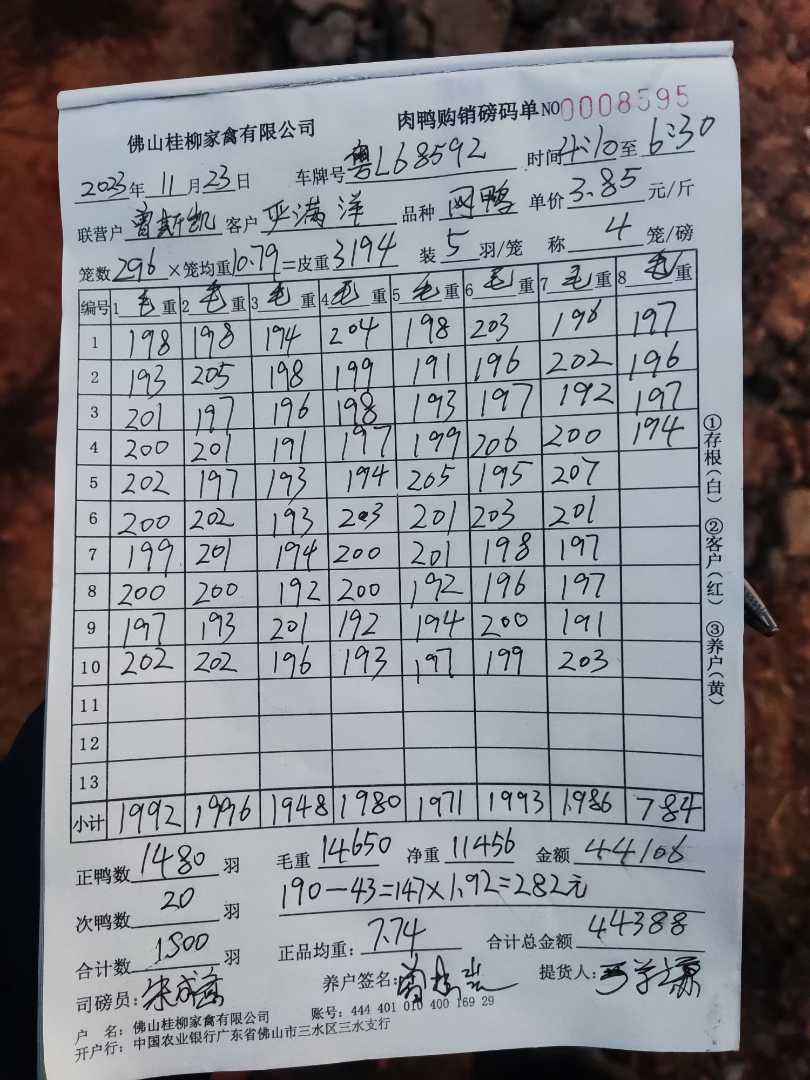 佛山桂柳家禽有限公司 肉鸭购销磅码单 NO0008595
2023年11月23日 车牌号粤L68592 时间4:10至6:30
联营户曾斯凯 客户严满洋 品种 网鸭 单价3.85元/斤
笼数296×笼均重10.79=皮重3194 装5羽/笼 称4笼/磅
编号 1毛重 2毛重 3毛重 4毛重 5毛重 6毛重 7毛重 8毛重
1 198 198 194 204 198 203 196 197
2 193 205 198 199 191 196 202 196
3 201 197 196 198 193 197 192 197
4 200 201 191 197 199 206 200 194
5 202 197 193 194 205 195 207
6 200 202 193 203 201 203 201
7 199 201 194 200 201 198 197
8 200 200 192 200 192 196 197
9 197 193 201 192 194 200 191
10 202 202 196 193 197 199 203
11
12
13
小计 1992 1996 1948 1980 1971 1993 1986 784
正鸭数1480羽 毛重14650 净重11456 金额44106
次鸭数20羽 190-43=147×1.92=282元
合计数1500羽 正品均重:7.74 合计总金额44388
司磅员: 养户签名: 提货人:
户 名:佛山桂柳家禽有限公司 账号:444 401 010 400 169 29
开户行:中国农业银行广东省佛山市三水区三水支行
①存根(白) ②客户(红) ③养户(黄)